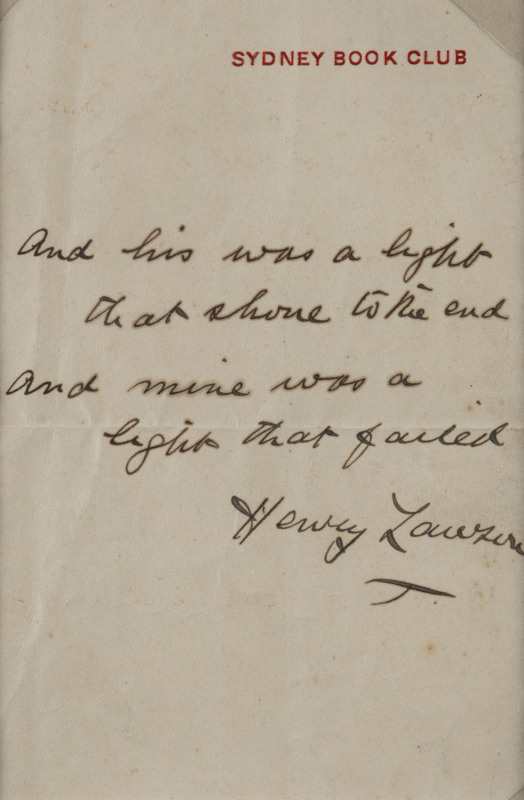 SYDNEY BOOK CLUB
And his was a light
that shone to the end
And mine was a
light that failed
Henry Lawson